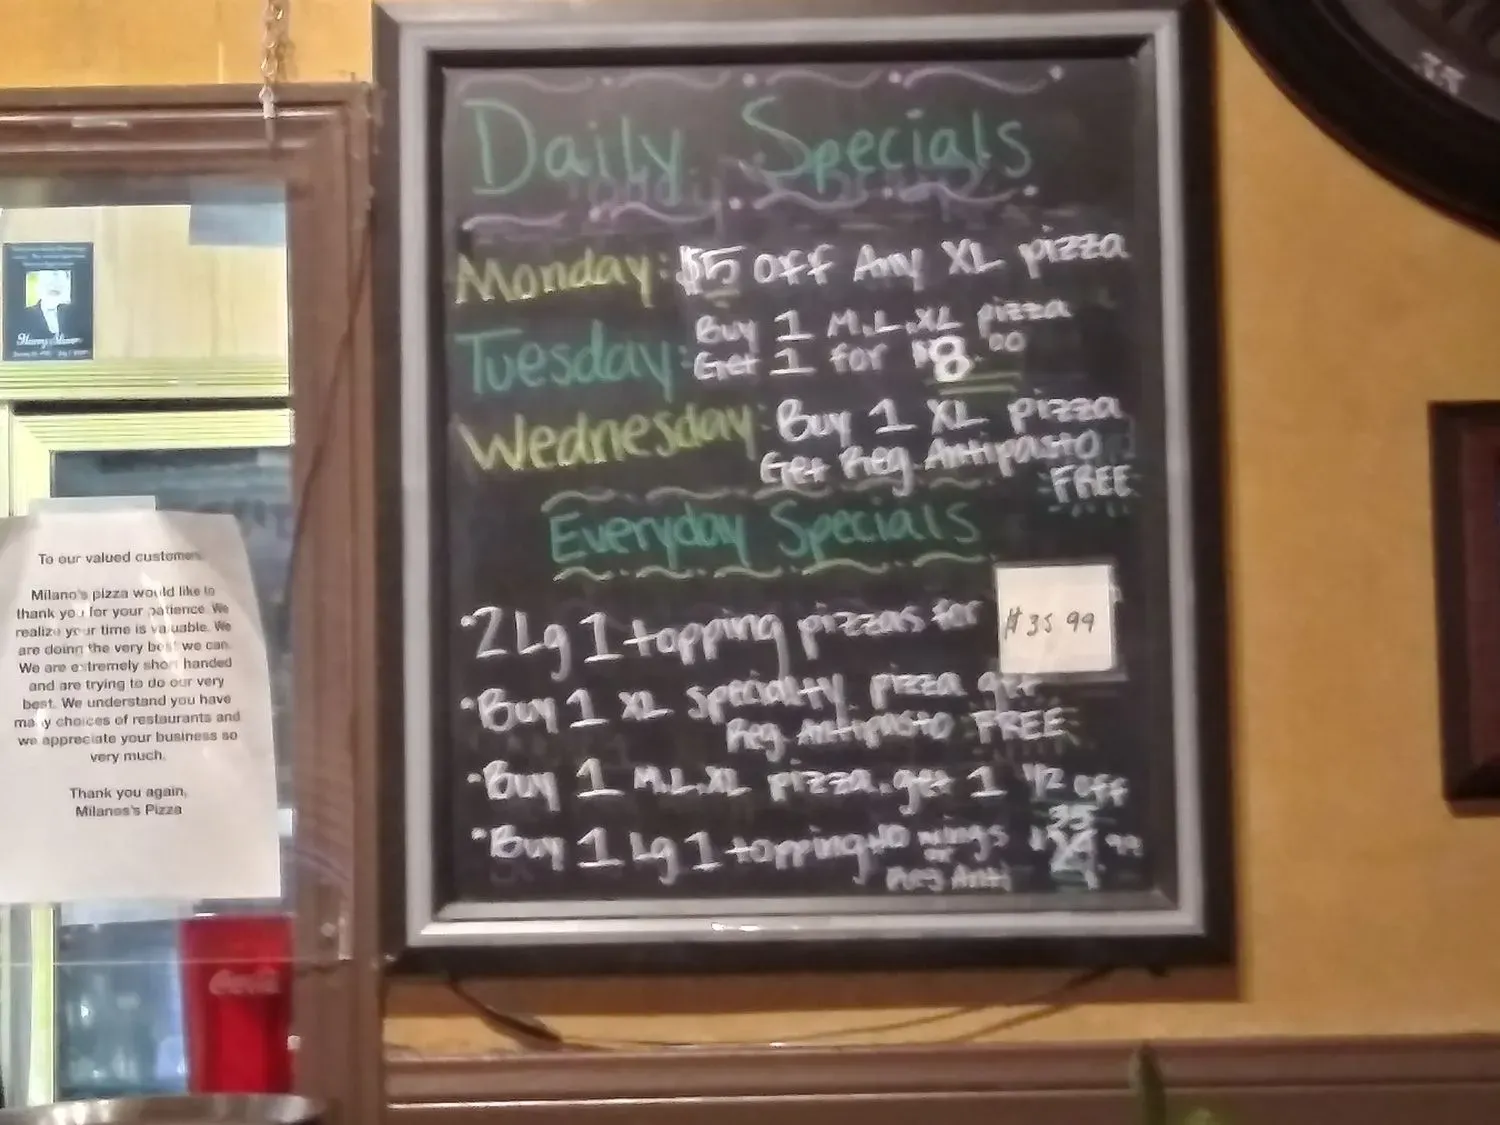 Daily Specials
Monday: $5 off Any XL pizza
Tuesday: Buy 1 M,L,XL pizza
Get 1 for $8.00
Wednesday: Buy 1 XL pizza
Get Reg. Antipasto
FREE
Everyday Specials
• 2 Lg 1 topping pizzas for $35 99
• Buy 1 XL specialty pizza get
Reg. Antipasto FREE
• Buy 1 M,L,XL pizza, get 1 1/2 off
• Buy 1 Lg 1 topping 10 wings $35.99
or
Reg Anti
To our valued customer
Milano's pizza would like to
thank you for your patience. We
realize your time is valuable. We
are doing the very best we can.
We are extremely short handed
and are trying to do our very
best. We understand you have
many choices of restaurants and
we appreciate your business so
very much.
Thank you again,
Milanos's Pizza
Coca